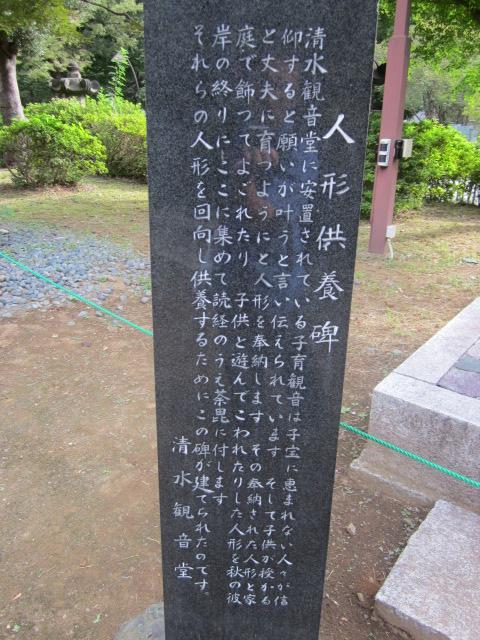 人形供養碑
清水観音堂に安置されている子育観音は子宝に恵まれない人々が信
仰すると願いが叶うと言い伝えられています そして子供が授かる
と丈夫に育つようにと人形を奉納します その奉納された人形と家
庭で飾つてよごれたり 子供と遊んでこわれたりした人形を秋の彼
岸の終りにここに集めて読経のうえ荼毘に付します
それらの人形を回向し供養するためにこの碑が建てられたのです。
清水観音堂